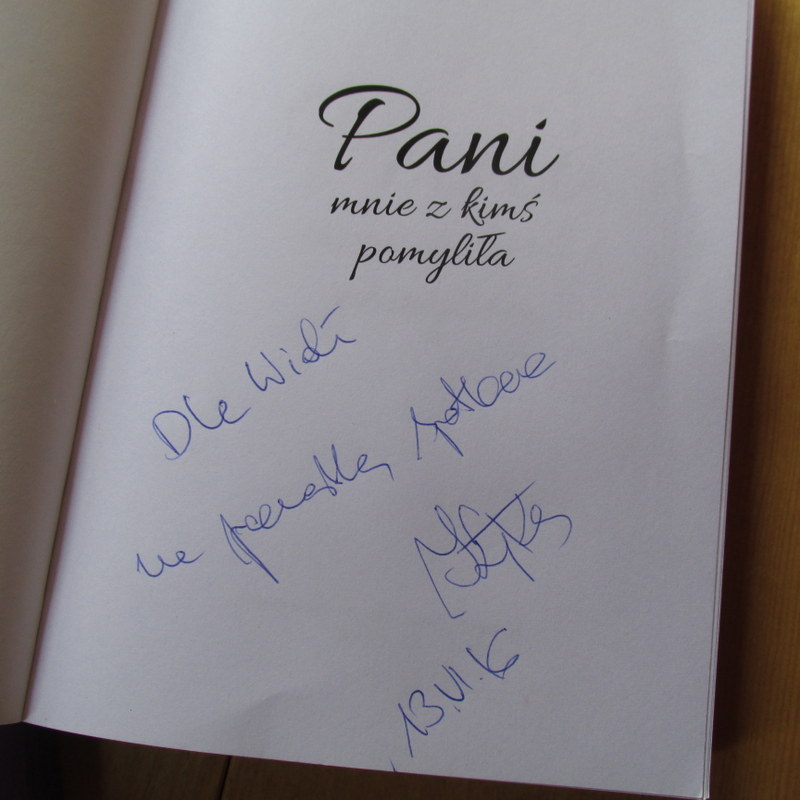 Pani
mnie z kimś
pomyliła
Dla Widi
na pamiątkę spotkania
13.VI.16